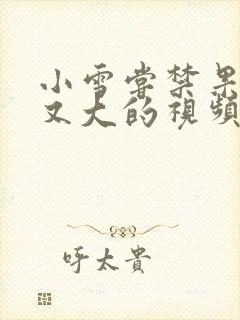 小雪嘗禁果
又大的視頻
呼太貴